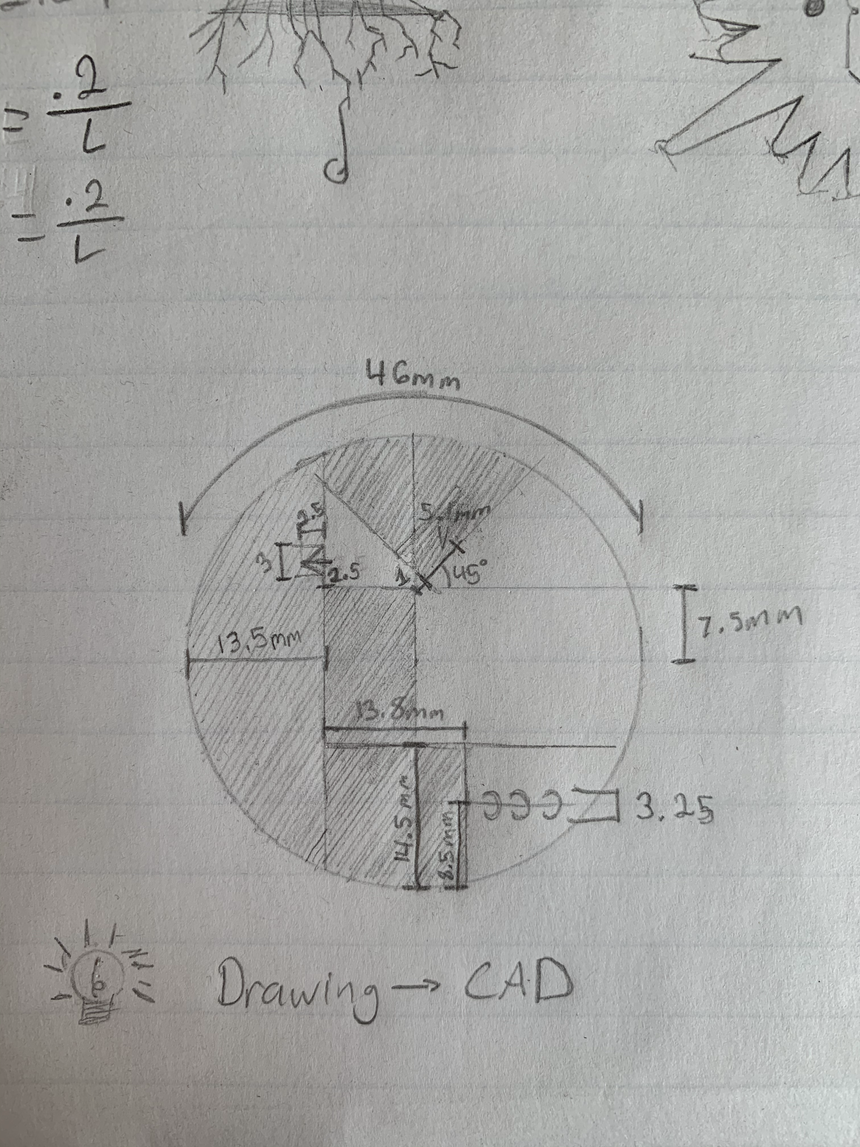 = .2
L
= .2
L
46mm
2.5
5.1mm
3
2.5
1
45°
7.5mm
13.5mm
13.8mm
14.5mm
8.5mm
3.25
6
Drawing → CAD